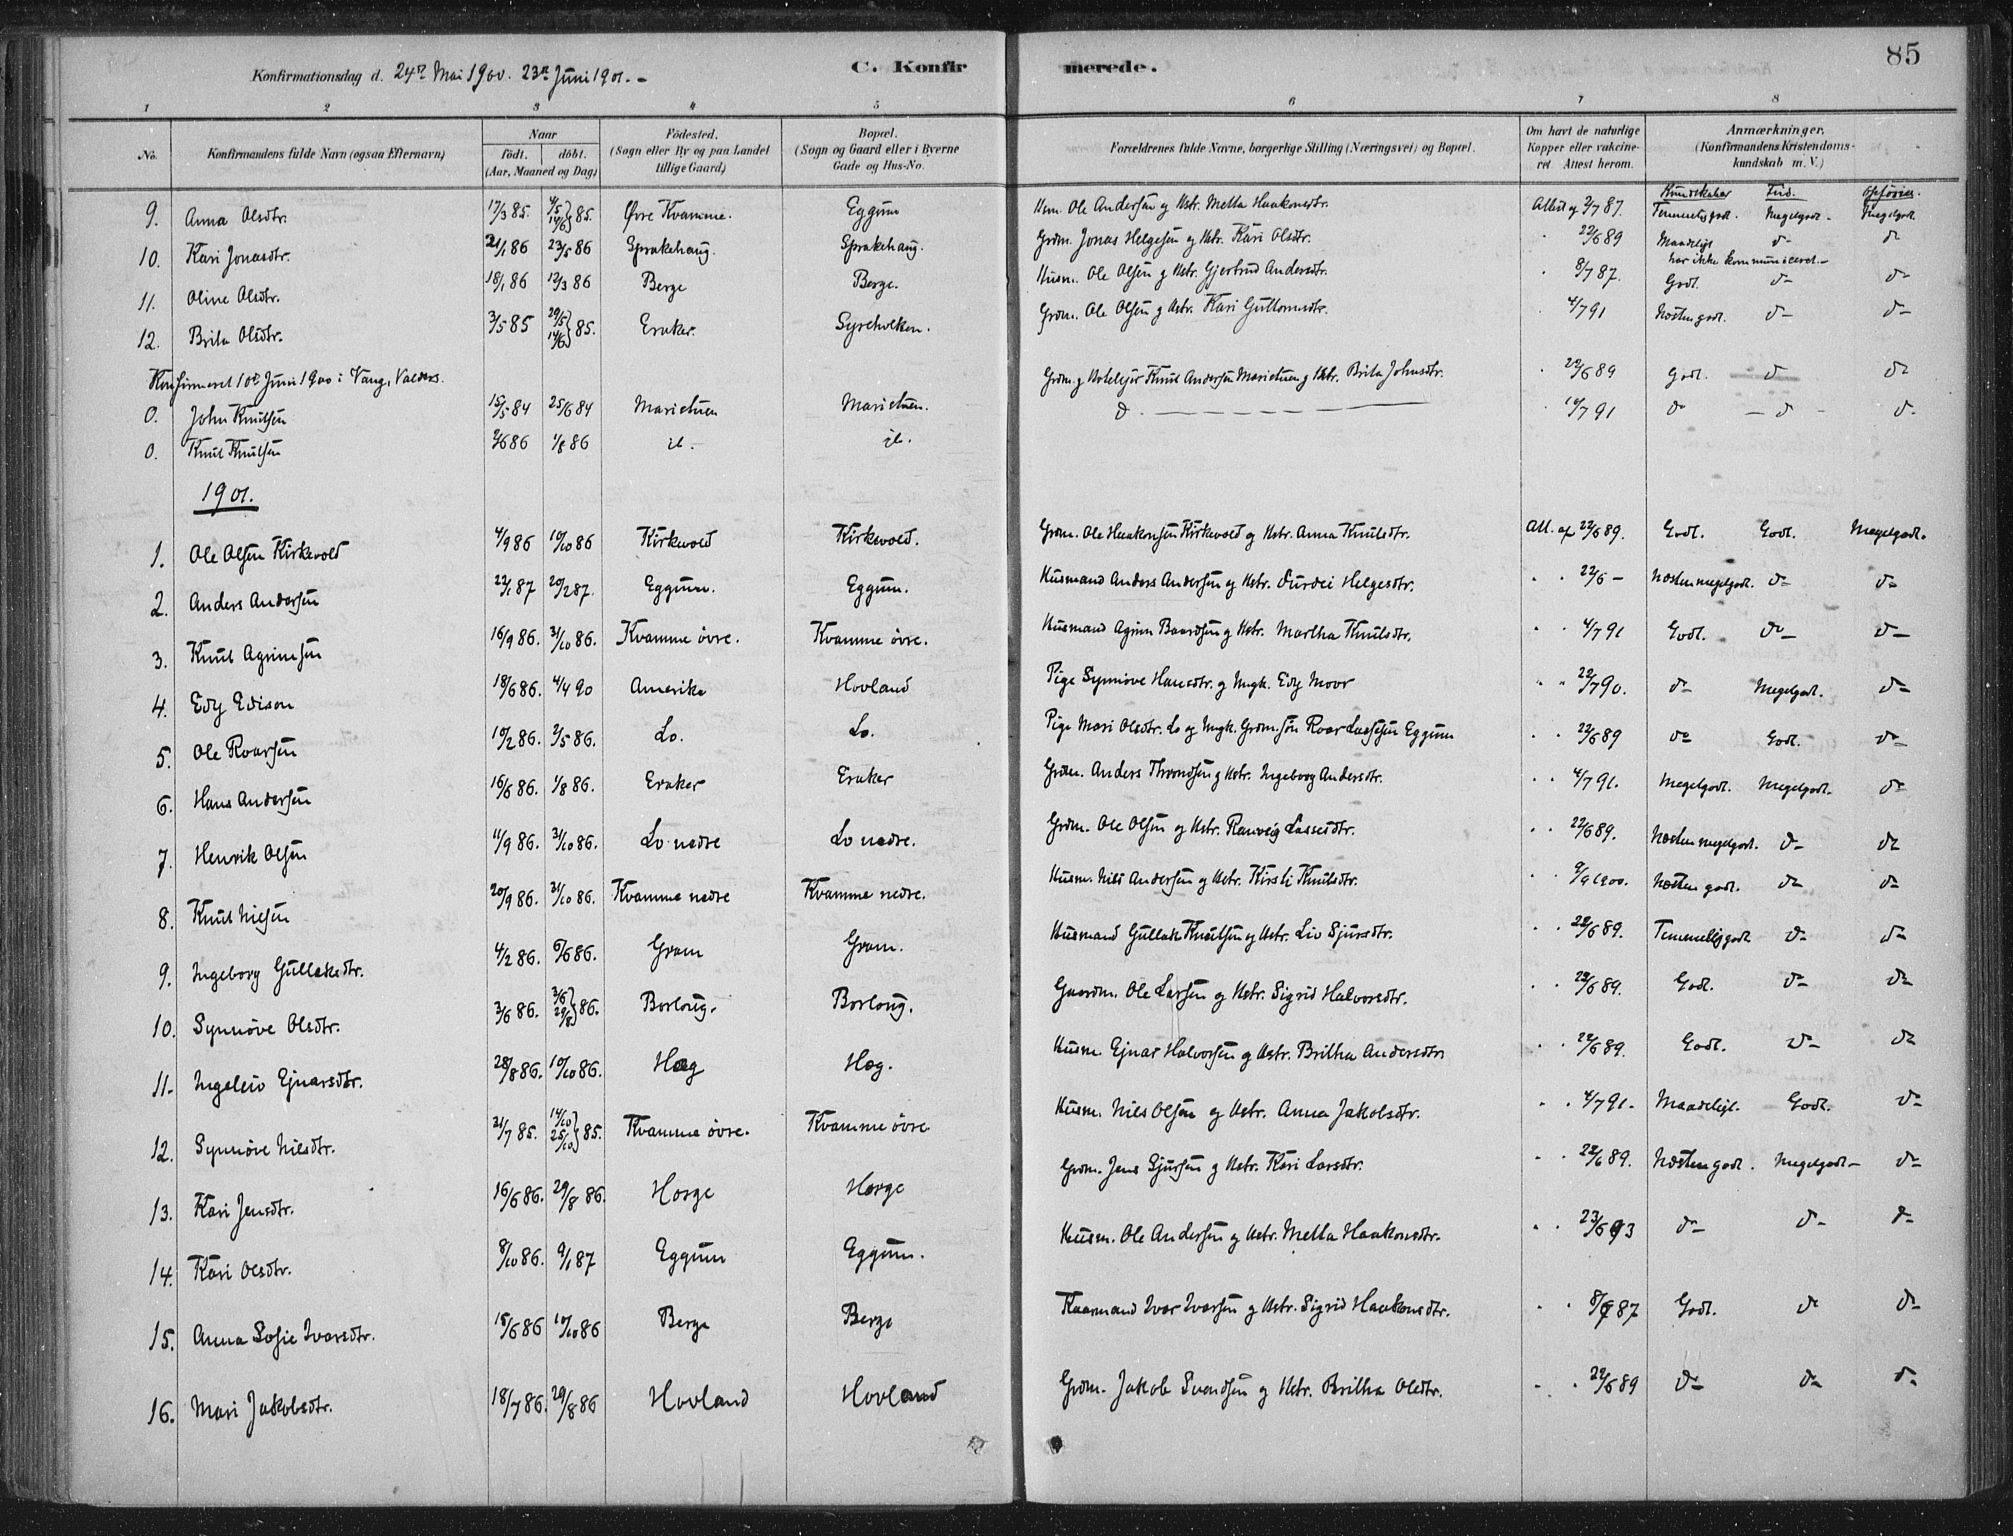 85
Konfirmationsdag d. 24de Mai 1900. 23de Juni 1901. –
C. Konfirmerede.
1 2 3 4 5 6 7 8
No. Konfirmandens fulde Navn (ogsaa Efternavn) Naar födt. döbt. (Aar, Maaned og Dag) Födested. (Sogn eller By og paa Landet tillige Gaard) Bopæl. (Sogn og Gaard eller i Byerne Gade og Hus-No. Forældrenes fulde Navne, borgerlige Stilling (Næringsvei) og Bopæl. Om havt de naturlige Kopper eller vakcineret Attest herom. Anmærkninger. (Konfirmandens Kristendomskundskab m. V.)
Kundskaber Flid. Opførsel.
9. Anna Olsdtr. 17/3 85. 4/5 14/6 } 85. Øvre Kvamme. Eggum Hsm. Ole Andersen og Hstr. Metta Haakonsdtr. Attest af 2/7 87. Temmeligodt. Megetgodt. Megetgodt.
10. Kari Jonasdtr. 21/1 86 23/5 86 Sprakehaug. Sprakehaug. Grdm. Jonas Helgesen og Hstr. Kari Olsdtr. 22/6 89 Maadeligt do do
har ikke kommuniceret. –
11. Oline Olsdtr. 18/1 86 12/3 86 Berge Berge. Husm. Ole Olsen og Hstr. Gjertrud Andersdtr. 8/7 87. Godt. do do
12. Brita Olsdtr. 3/5 85 29/5 14/6 } 85. Eraker. Syreholken. Grdm. Ole Olsen og Hstr. Kari Guttormsdtr. 4/7 91 Næsten godt. do do
Konfirmeret 10de Juni 1900 i Vang, Valders.
0. John Knutsen 15/5 84 25/6 84 Maristuen Maristuen. Grdm. og Hoteleier Knut Andersen Maristuen og Hstr. Brita Johnsdtr. 22/6 89 Godt. do do
0. Knut Knutsen 2/6 86 1/8 86 id. id. do 10/7 91 do do do
1901.
1. Ole Olsen Kirkevold 4/9 86 10/10 86 Kirkevold Kirkevold. Grdm. Ole Haakonsen Kirkevold og Hstr. Anna Knutsdtr. Att. af 22/6 89. Godt. Godt. Megetgodt.
2. Anders Andersen 22/1 87 20/2 87. Eggum. Eggum. Husmand Anders Andersen og Hstr. Durdei Helgesdtr. 22/6 – Næsten megetgodt. do do
3. Knut Agrimsen 16/9 86. 31/10 86. Kvamme øvre. Kvamme øvre. Husmand Agrim Baardsen og Hstr. Martha Knutsdtr. 4/7 91 Godt. do do
4. Edy Edison 18/6 86. 4/4 90 Amerika Hovland Pige Synnøve Hansdtr. og Ungk. Edy Moor 22/7 90. do Megetgodt. do
5. Ole Roarsen 10/2 86. 2/5 86. Lo. Lo. Pige Mari Olsdtr. Lo og Ungk. Grdm.søn Roar Lassesen Eggum 22/6 89 do Godt. do
6. Hans Andersen 16/6 86. 1/8 86. Eraker Eraker Grdm. Anders Throndsen og Hstr. Ingeborg Andersdtr. 4/7 91. Megetgodt. Megetgodt. do
7. Henrik Olsen 11/9 86. 31/10 86. Lo nedre Lo nedre. Grdm. Ole Olsen og Hstr. Ranveig Lassesdtr. 22/6 89. Næsten megetgodt. do do
8. Knut Nilsen 20/9 86. 31/10 86. Kvamme nedre Kvamme nedre. Husm. Nils Andersen og Hstr. Kirsti Knutsdtr. 9/9 1900. Næsten godt. do do
9. Ingeborg Gullaksdtr. 4/2 86. 6/6 86. Gram Gram. Husmand Gullak Knutsen og Hstr. Liv Sjursdtr. 22/6 89. Temmeligodt do do
10. Synnøve Olsdtr. 3/6 86. 3/6 29/8 } 86. Borlaug. Borlaug. Gaardm. Ole Larsen og Hstr. Sigrid Halvorsdtr. 22/6 89. Godt. do do
11. Ingeleiv Ejnarsdtr. 28/8 86. 10/10 86. Hæg Hæg. Husm. Ejnar Halvorsen og Hstr. Britha Andersdtr 22/6 89. Godt. do do
12. Synnøve Nilsdtr. 31/7 85. 14/10 25/10 } 85. Kvamme øvre. Kvamme øvre Husm. Nils Olsen og Hstr. Anna Jakobsdtr. 4/7 91. Maadeligt. Godt. do
13. Kari Jensdtr. 16/6 86. 29/8 86. Horge Horge Grdm. Jens Sjursen og Hstr. Kari Larsdtr. 22/6 89. Næsten godt. Megetgodt – do
14. Kari Olsdtr. 8/10 86. 9/1 87 Eggum Eggum. Husm. Ole Andersen og Hstr. Metta Haakonsdtr. 23/6 93 do do do
15. Anna Sofie Ivarsdtr. 15/6 86 10/10 86 Berge Berge Kaarmand Ivar Ivarsen og Hstr. Sigrid Haakonsdtr. 8/7 87 Godt. do do
16. Mari Jakobsdtr. 18/7 86. 29/8 86 Hovland Hovland Grdm. Jakob Svendsen og Hstr. Britha Olsdtr. 22/6 89 do do do